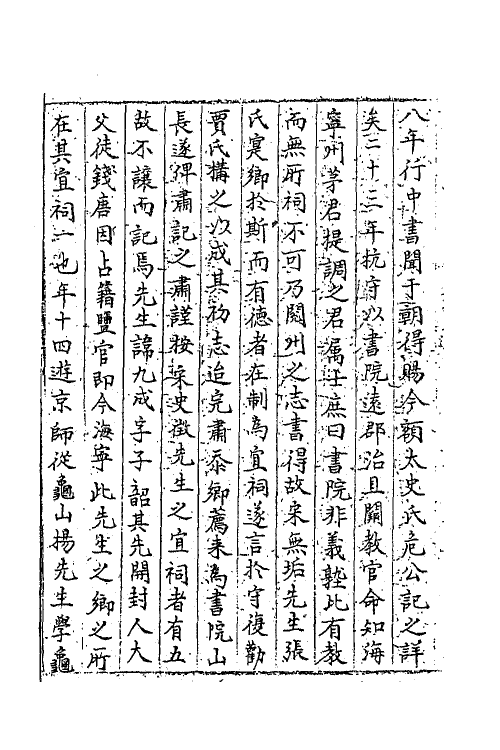 八年行中書聞于朝得賜今額太史氏危公記之詳
矣二十三年杭守以書院遠郡治且闕教官命知海
寧州茅君提調之君属壬庶曰書院非義塾比有教
而無所祠不可乃閱州之志書得故宋無垢先生張
氏寔鄉於斯而有德者在制為宜祠遂言於守復勸
賈氏構之以成其初志迨完肅忝鄉薦来為書院山
長遂俾肅記之肅謹按宋史徵先生之宜祠者有五
故不讓而記焉先生諱九成字子韶其先開封人大
父徒錢唐因占籍鹽官即今海寧此先生之鄉之所
在其宜祠一也年十四遊京師從龜山楊先生學龜